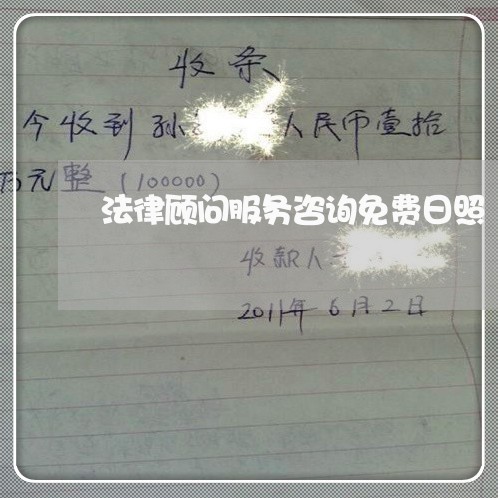 收条
今收到孙 人民币壹拾
万元整(100000)
法律顾问服务咨询免费日照
收款人
2011年6月2日